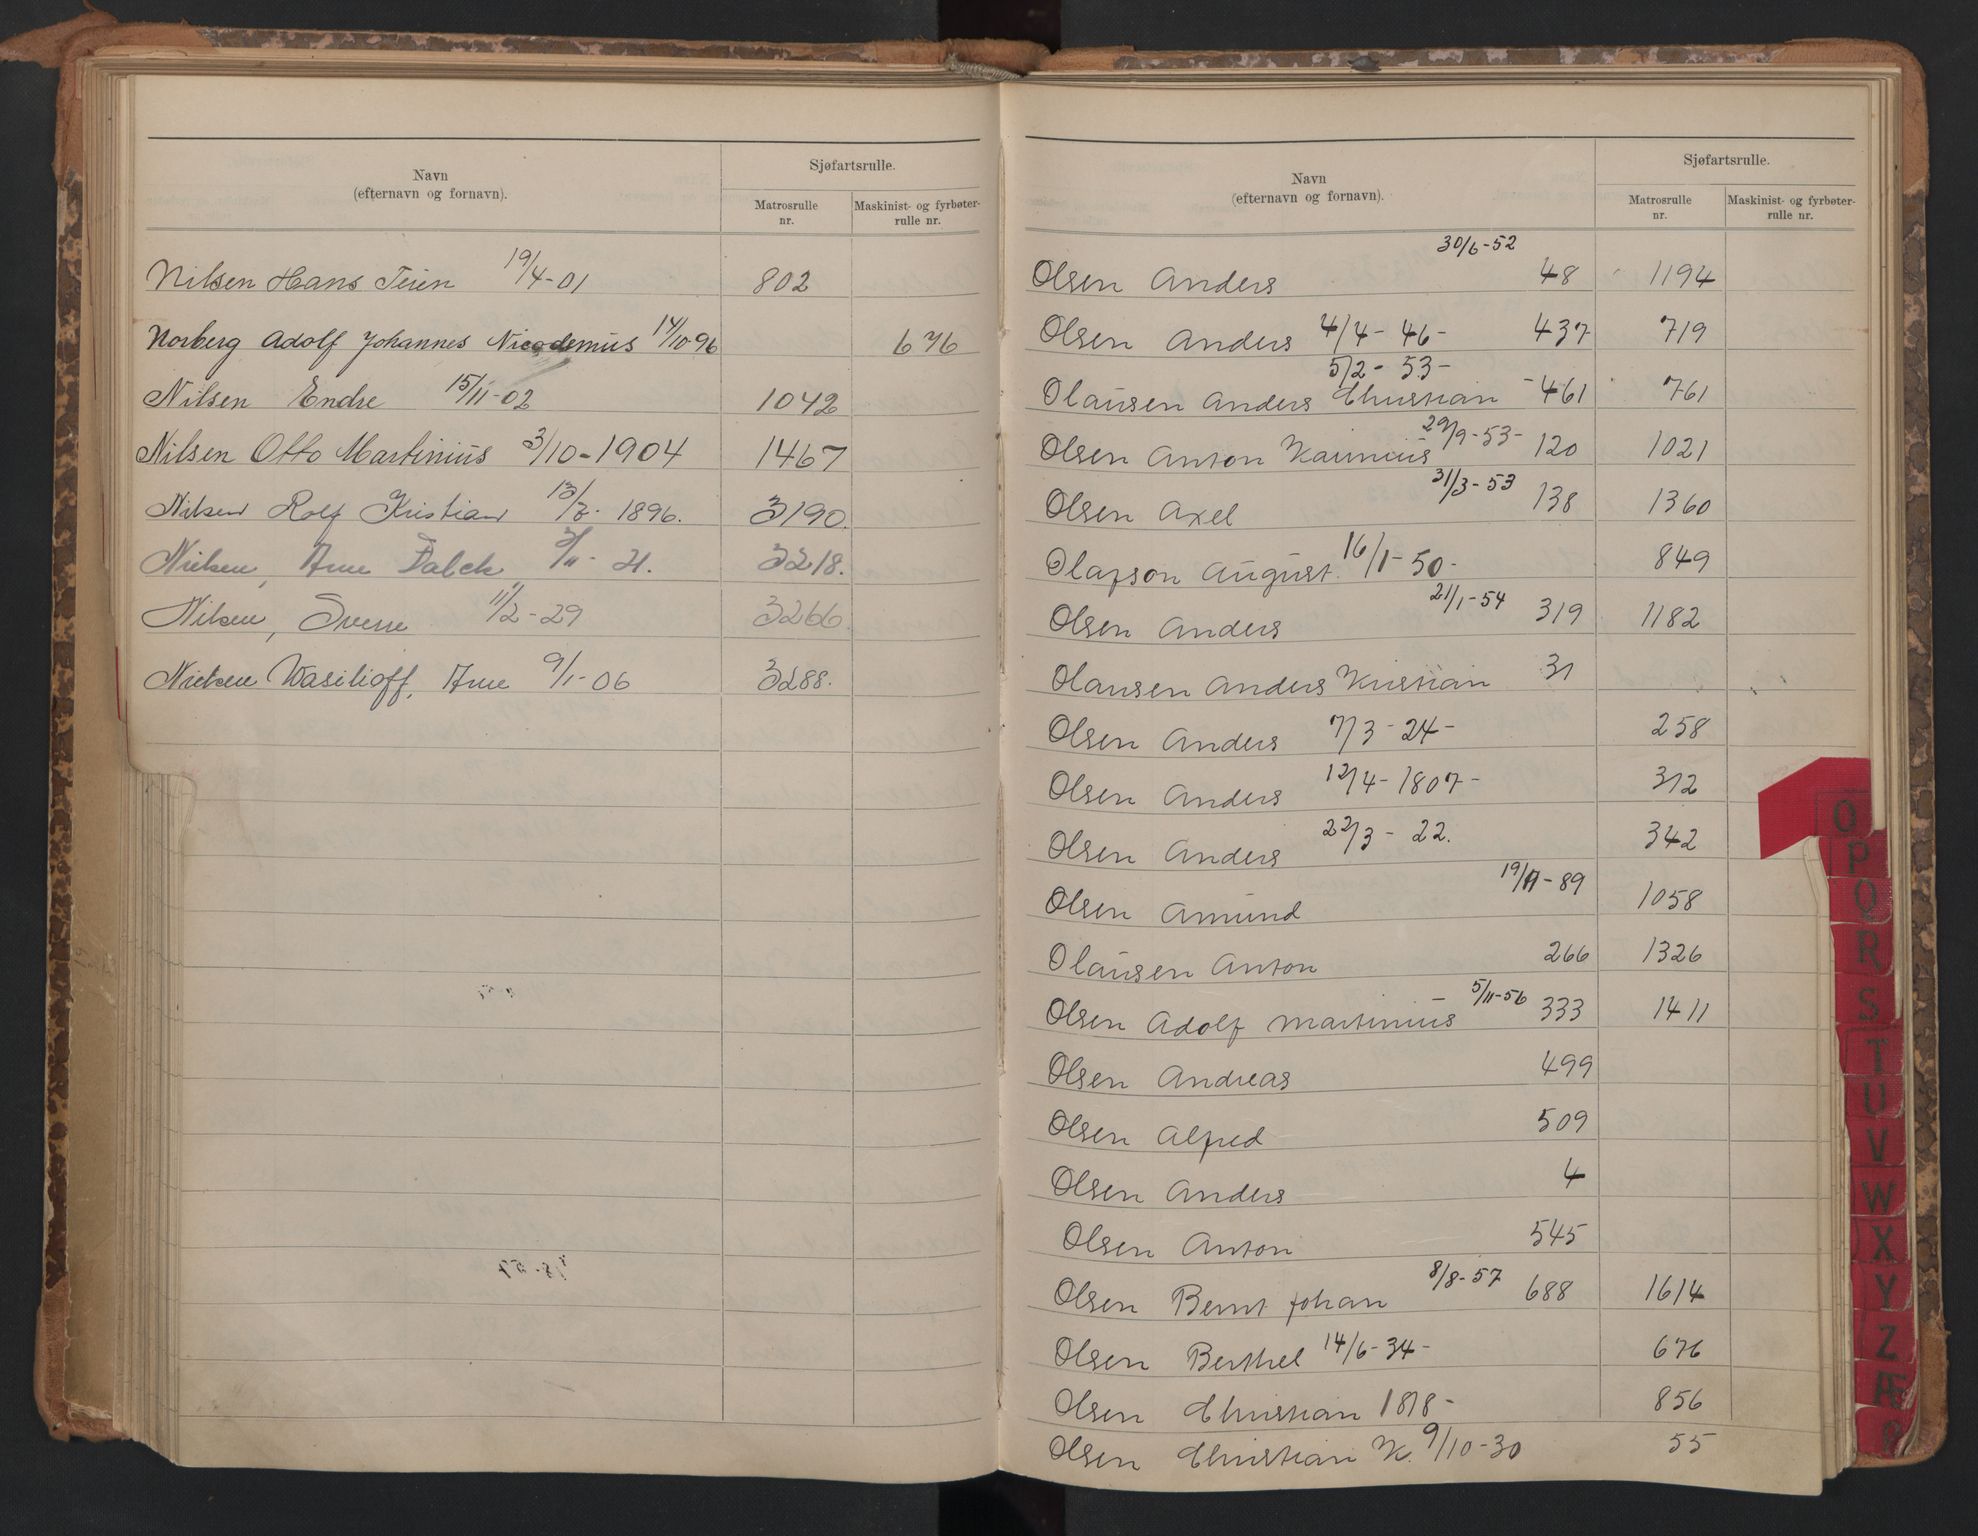 Navn
(efternavn og fornavn).
Sjøfartsrulle.
Matrosrulle nr.
Maskinist- og fyrbøter-rulle nr.
Nilsen Hans Teien 19/4-01 802
Norberg Adolf Johannes Nicodemus 14/10-96 676
Nilsen Endre 15/11-02 1042
Nilsen Otto Martinius 3/10-1904 1467
Nilsen Rolf Kristian 1896. 3190.
Nielsen, Arne Falck 3218.
Nilsen, Sverre 11/2-29 3266
Nielsen Wasilioff, Arne 9/1-06 3288.
Navn
(efternavn og fornavn).
Sjøfartsrulle.
Matrosrulle nr.
Maskinist- og fyrbøter-rulle nr.
Olsen Anders 30/6-52 48 1194
Olsen Anders 4/4-46- 437 719
Olausen Anders Christian 5/2-53- 461 761
Olsen Anton 29/9-53- 120 1021
Olsen Axel 31/3-53 138 1360
Olafson August. 16/1-50- 849
Olsen Anders 21/1-54 319 1182
Olausen Anders Kristian 31
Olsen Anders 7/3-24- 258
Olsen Anders 12/4-1807- 312
Olsen Anders 22/3-22. 342
Olsen Amund 19/11-89 1058
Olausen Anton 266 1326
Olsen Adolf Martinius 5/11-56 333 1411
Olsen Andreas 499
Olsen Alfred 509
Olsen Anders 4
Olsen Anton 545
Olsen Bernt Johan 8/8-57 688 1614
Olsen Berthel 14/6-34- 676
Olsen Christian 1818- 856
Olsen Christian K. 9/10-30 55
O
P
Q
R
S
T
U
V
W
X
Y
Z
Æ